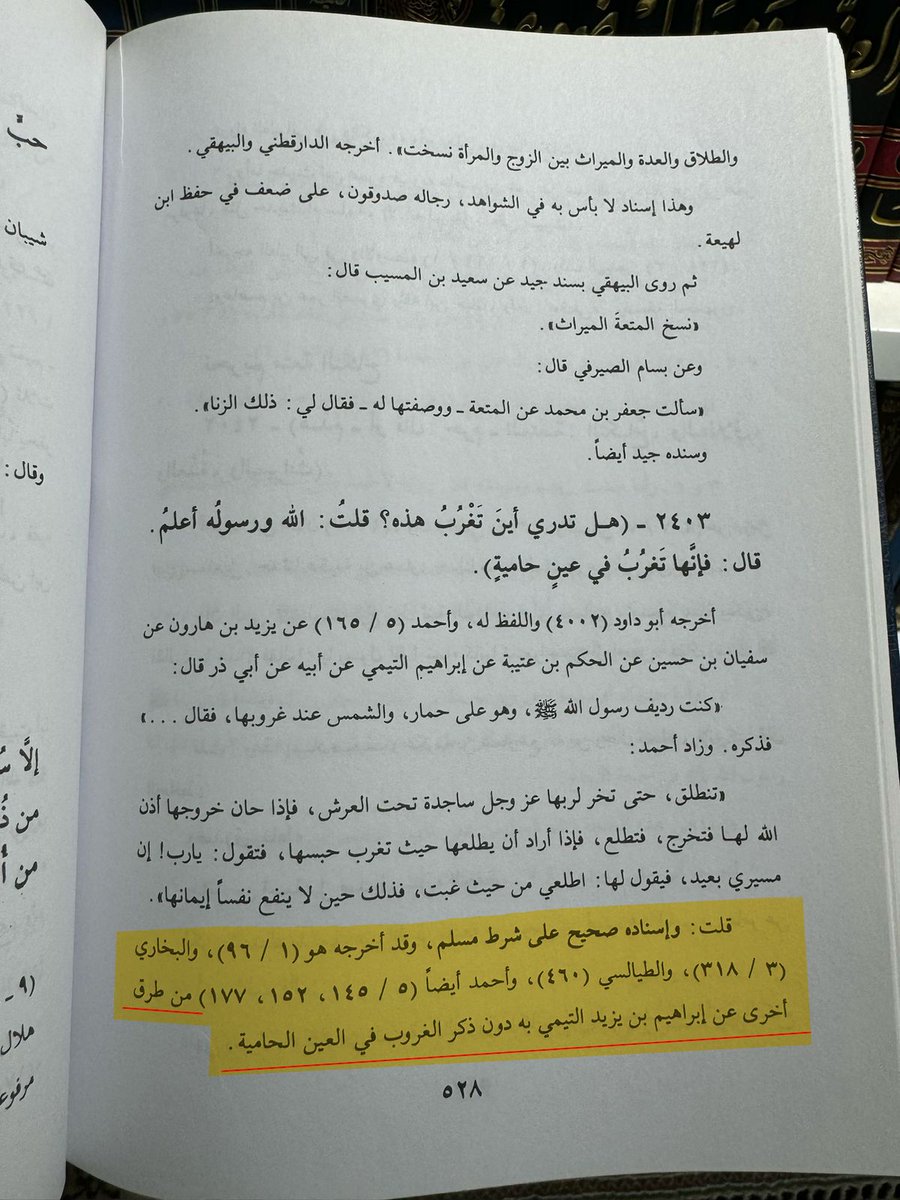 والطلاق والعدة والميراث بين الزوج والمرأة نسخت». أخرجه الدارقطني والبيهقي.
وهذا إسناد لا بأس به في الشواهد، رجاله صدوقون، على ضعف في حفظ ابن
لهيعة.
ثم روى البيهقي بسند جيد عن سعيد بن المسيب قال:
«نسخ المتعةَ الميراث».
وعن بسام الصيرفي قال:
«سألت جعفر بن محمد عن المتعة ـ ووصفتها له ـ فقال لي: ذلك الزنا».
وسنده جيد أيضاً.
٢٤٠٣ ـ (هـل تدري أينَ تَغْرُبُ هذه؟ قلتُ: الله ورسولُه أعلمُ.
قال: فإنَّها تَغرُبُ في عينٍ حاميةٍ).
أخرجه أبو داود (٤٠٠٢) واللفظ له، وأحمد (٥ / ١٦٥) عن يزيد بن هارون عن
سفيان بن حسين عن الحكم بن عتيبة عن إبراهيم التيمي عن أبيه عن أبي ذر قال:
«كنت رديف رسول الله ﷺ، وهو على حمار، والشمس عند غروبها، فقال ...»
فذكره. وزاد أحمد:
«تنطلق، حتى تخر لربها عز وجل ساجدة تحت العرش، فإذا حان خروجها أذن
الله لهـا فتخرج، فتطلع، فإذا أراد أن يطلعها حيث تغرب حبسها، فتقول: يارب! إن
مسيري بعيد، فيقول لها: اطلعي من حيث غبت، فذلك حين لا ينفع نفساً إيمانها».
قلت: وإسناده صحيح على شرط مسلم، وقد أخرجه هو (١ / ٩٦)، والبخاري
(٣ / ٣١٨)، والطيالسي (٤٦٠)، وأحمد أيضاً (٥ / ١٤٥، ١٥٢، ١٧٧) من طرق
أخرى عن إبراهيم بن يزيد التيمي به دون ذكر الغروب في العين الحامية.
٥٢٨
حبّ
شيبان
وقال:
إلَّا
من
من
(٩ ـ
ملال